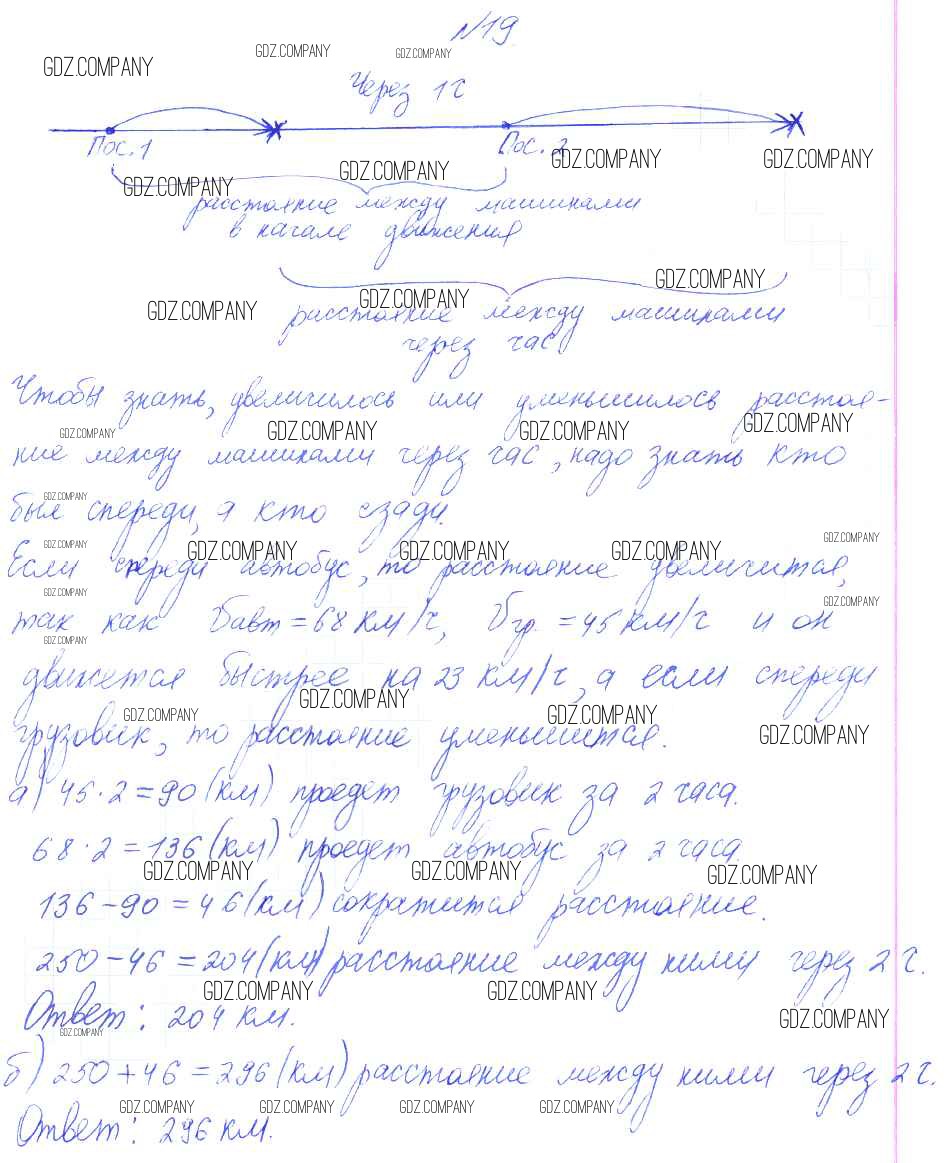 №19.
GDZ.COMPANY GDZ.COMPANY GDZ.COMPANY
Через 1 ч
Пос. 1 Пос. 2
GDZ.COMPANY GDZ.COMPANY GDZ.COMPANY GDZ.COMPANY
расстояние между машинами
в начале движения
GDZ.COMPANY GDZ.COMPANY GDZ.COMPANY
расстояние между машинами
через час
Чтобы знать, увеличилось или уменьшилось расстоя-
GDZ.COMPANY GDZ.COMPANY GDZ.COMPANY GDZ.COMPANY
ние между машинами через час, надо знать кто
GDZ.COMPANY
был спереди, а кто сзади.
GDZ.COMPANY GDZ.COMPANY GDZ.COMPANY GDZ.COMPANY GDZ.COMPANY
Если спереди автобус, то расстояние увеличится,
GDZ.COMPANY GDZ.COMPANY
так как υавт = 68 км/ч, υгр. = 45 км/ч и он
GDZ.COMPANY
движется быстрее на 23 км/ч, а если спереди
GDZ.COMPANY GDZ.COMPANY GDZ.COMPANY GDZ.COMPANY
грузовик, то расстояние уменьшится.
а) 45 · 2 = 90 (км) проедет грузовик за 2 часа.
68 · 2 = 136 (км) проедет автобус за 2 часа.
GDZ.COMPANY GDZ.COMPANY GDZ.COMPANY
136 - 90 = 46 (км) сократится расстояние.
250 - 46 = 204 (км) расстояние между ними через 2 ч.
GDZ.COMPANY GDZ.COMPANY GDZ.COMPANY
Ответ: 204 км.
GDZ.COMPANY
б) 250 + 46 = 296 (км) расстояние между ними через 2 ч.
GDZ.COMPANY GDZ.COMPANY GDZ.COMPANY GDZ.COMPANY
Ответ: 296 км.